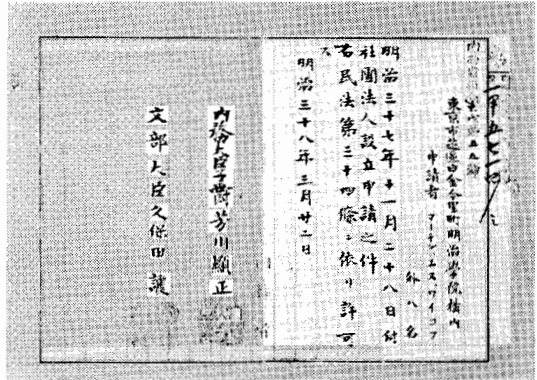 東京市芝區白金今里町明治學院構内
申請者 マーチンエヌワイコフ
外八名
明治三十七年十一月二十八日付
社團法人設立申請之件
右民法第三十四條ニ依リ許可
ス
明治三十八年三月廿二日
内務大臣子爵芳川顯正
文部大臣久保田讓